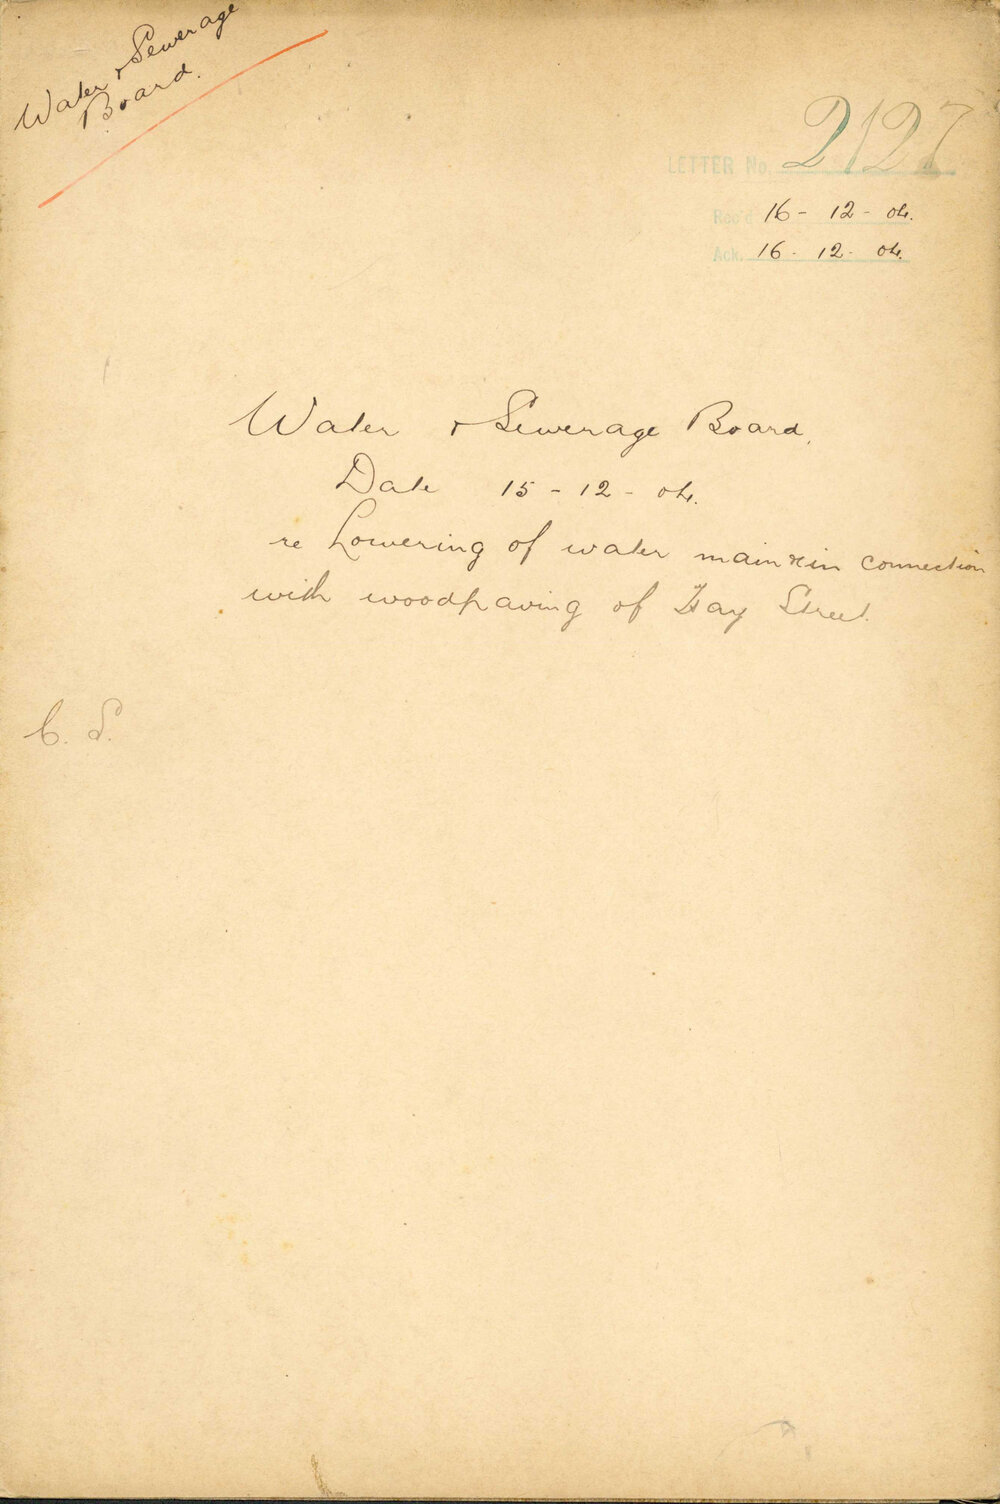 Water & Sewerage
Board.
LETTER No. 2127
Rec'd 16 - 12 - 04.
Ack. 16 - 12 - 04.
Water & Sewerage Board.
Date 15 - 12 - 04.
re Lowering of water main in connection
with woodpaving of Hay Street
C. S.